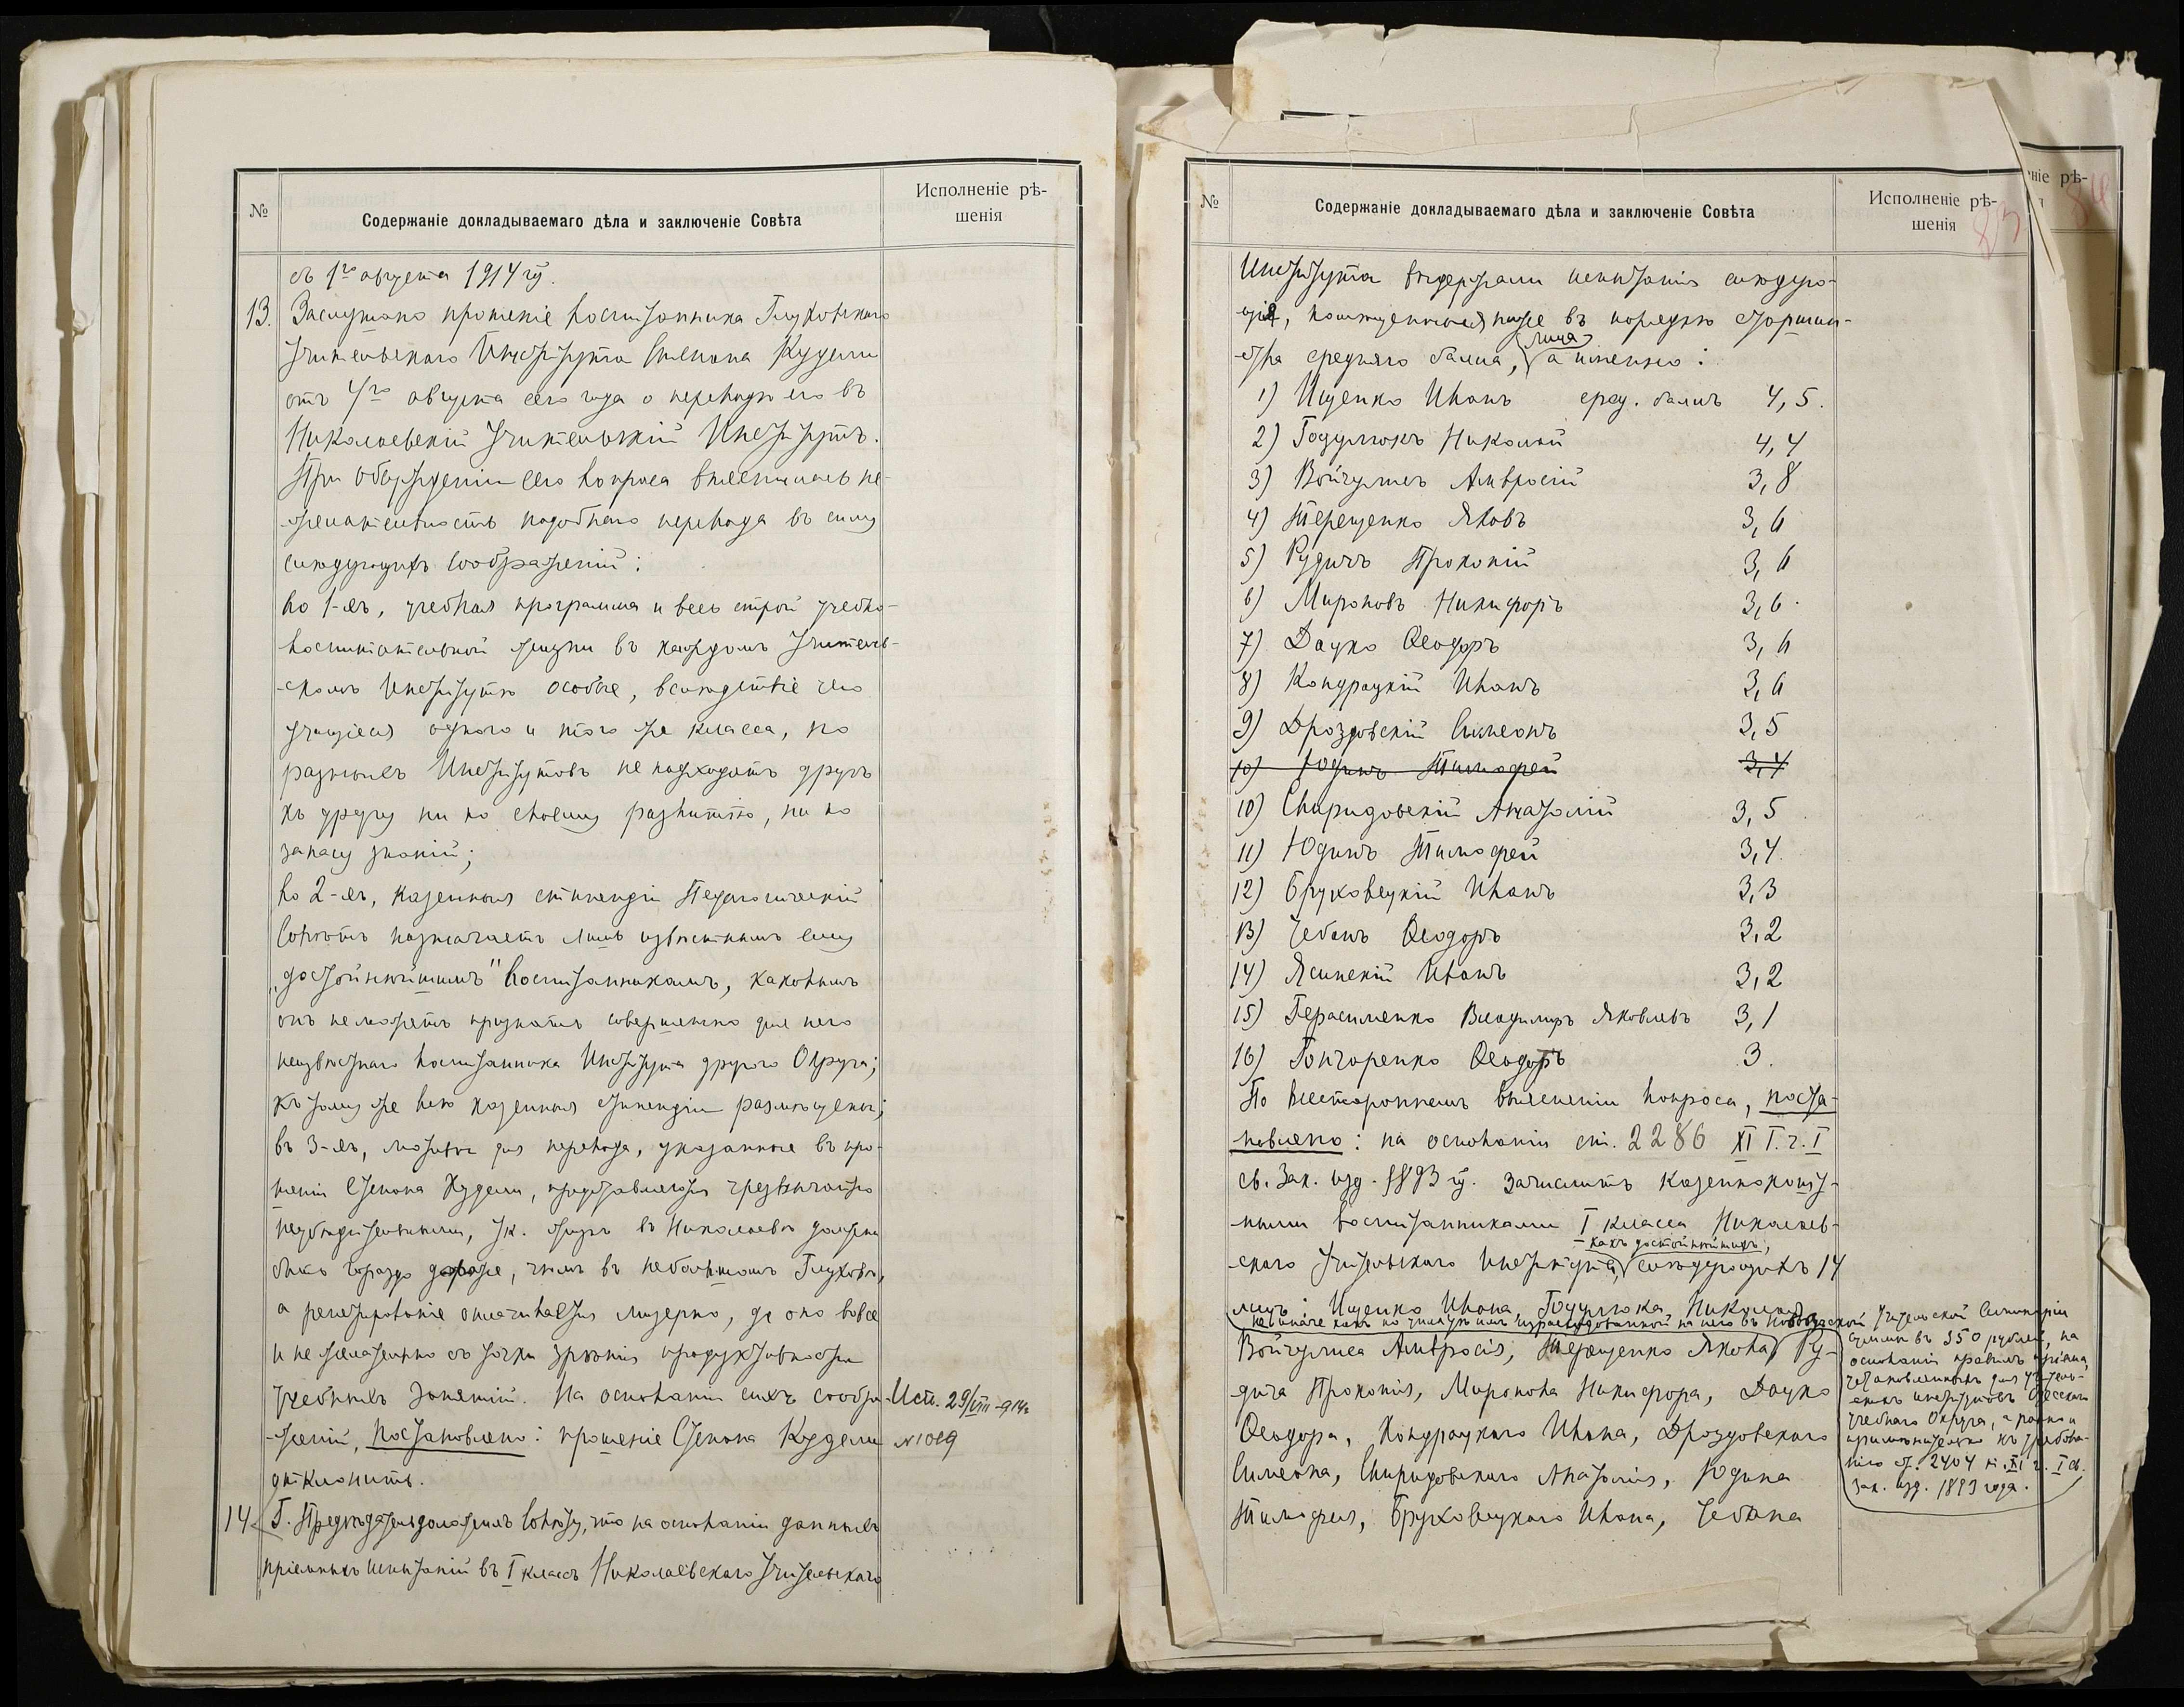 №
Содержаніе докладываемаго дѣла и заключеніе Совѣта
Исполненіе рѣ-
шенія
съ 1го августа 1914 г.
13. Заслушано прошеніе воспитанника Глуховскаго
Учительскаго Института Степана Кудели
отъ 4го августа сего года о переводѣ его въ
Николаевскій Учительскій Институтъ.
При обсужденіи сего вопроса выяснилась не-
-желательность подобнаго перевода въ силу
слѣдующихъ соображеній:
во 1-хъ, учебная программа и весь строй учебно-
воспитательной жизни въ каждомъ Учитель-
-скомъ Институтѣ особые, вслѣдствіе чего
учащіеся одного и того же класса, но
разныхъ Институтовъ не подходятъ другъ
къ другу ни по своему развитію, ни по
запасу знаній;
во 2-хъ, казенныя стипендіи Педагогическій
Совѣтъ назначаетъ лишь извѣстнымъ ему
„достойнѣйшимъ" воспитанникамъ, каковымъ
онъ не можетъ признать совершенно для него
неизвѣстнаго воспитанника Института другого Округа;
къ тому же всѣ казенныя стипендіи размѣщены;
въ 3-хъ, мотивы для перевода, указанные въ про-
шеніи Степана Кудели, представляются чрезвычайно
неубѣдительными, т.к. жизнь въ Николаевѣ должна
быть гораздо дороже, чѣмъ въ небольшомъ Глуховѣ,
а репетированіе оплачивается мизерно, да оно вовсе
и не желательно съ точки зрѣнія продуктивности
учебныхъ занятій. На основаніи сихъ сообра-
-женій, постановлено: прошеніе Степана Кудели
отклонить.
Исп. 29/VIII-914г
№1019
14. Г. Предсѣдатель доложилъ Совѣту, что на основаніи данныхъ
пріемныхъ испытаній въ I классъ Николаевскаго Учительскаго
№
Содержаніе докладываемаго дѣла и заключеніе Совѣта
Исполненіе рѣ-
шенія
83
ніе рѣ-
я
84
Института выдержали испытанія слѣдую-
щія, помѣщенныя ниже въ порядкѣ старшин-
лица
-ства средняго балла, а именно:
1) Ищенко Иванъ сред. баллъ 4,5.
2) Годулюкъ Николай 4,4
3) Войчулисъ Амвросій 3,8
4) Терещенко Яковъ 3,6
5) Рудичъ Прокопій 3,6
6) Мироновъ Никифоръ 3,6
7) Дацко Ѳеодоръ 3,6
8) Кондрацкій Иванъ 3,6
9) Дроздовскій Симеонъ 3,5
10) Юдинъ Тимофей 3,4
10) Спиридовскій Анатолій 3,5
11) Юдинъ Тимофей 3,4.
12) Бруховецкій Иванъ 3,3
13) Чебанъ Ѳеодоръ 3,2
14) Ясинскій Иванъ 3,2
15) Герасименко Владимиръ Яковлевъ 3,1
16) Гончаренко Ѳеодоръ 3.
По всестороннемъ выясненіи вопроса, поста-
новлено: на основаніи ст. 2286 XI т. ч. I
св. Зак. изд. 1893 г. зачислить казеннокошт-
ными воспитанниками I класса Николаев-
какъ достойнѣйшихъ,
скаго Учительскаго Института слѣдующихъ 14
лицъ: Ищенко Ивана, Годулюка Николая,
Войчулиса Амвросія, Терещенко Якова, Ру-
дича Прокопія, Миронова Никифора, Дацко
Ѳеодора, Кондрацкаго Ивана, Дроздовскаго
Симеона, Спиридовскаго Анатолія, Юдина
Тимофея, Бруховецкаго Ивана, Чебана
Учительской Семинаріи
суммы въ 350 рублей, на
основаніи правилъ пріема,
установленныхъ для учитель-
скихъ институтовъ Одесскаго
учебнаго Округа, а равно и
примѣнительно къ требова-
нію ст. 2404 т. XI ч. I св.
Зак. изд. 1893 года.